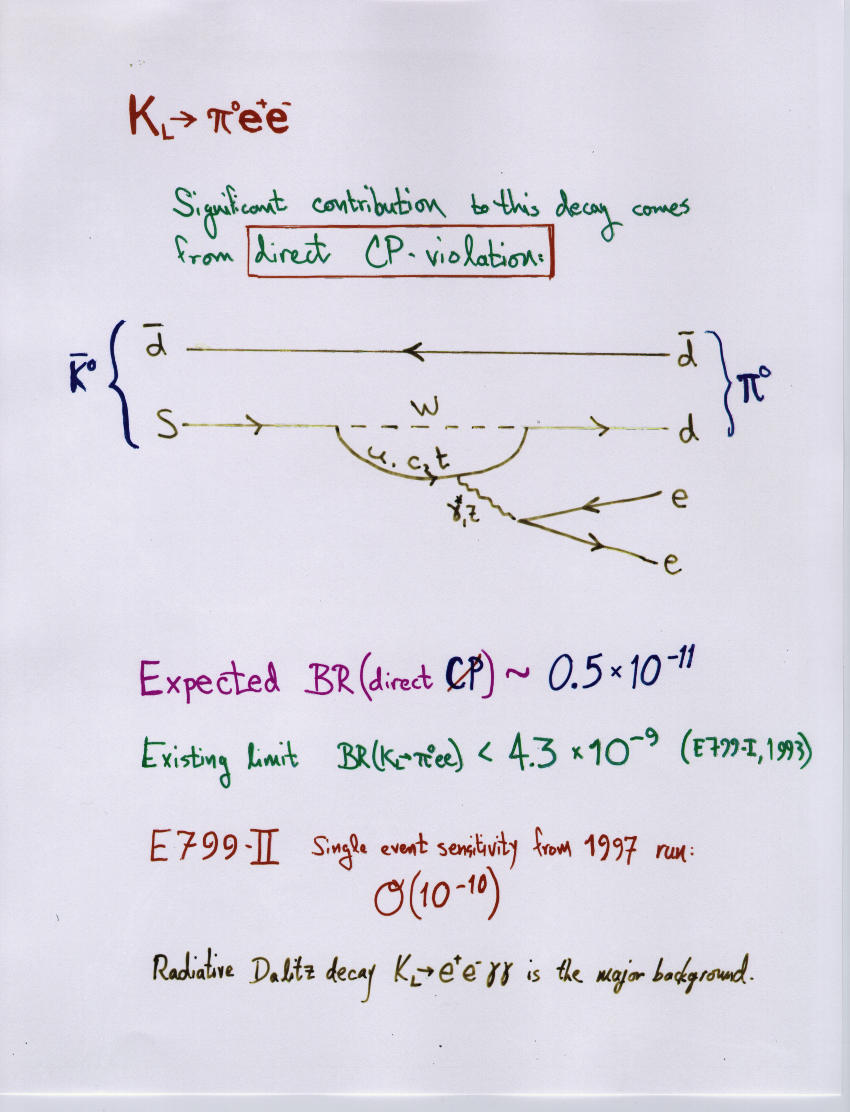 K_L → π⁰e⁺e⁻
Significant contribution to this decay comes
from direct CP-violation:
d̄ d̄
K̄⁰ π⁰
S W d
u, c, t
e
γ*, Z
e
Expected BR(direct CP) ~ 0.5 × 10⁻¹¹
Existing limit BR(K_L→π⁰ee) < 4.3 × 10⁻⁹ (E799-I, 1993)
E799-II Single event sensitivity from 1997 run:
O(10⁻¹⁰)
Radiative Dalitz decay K_L→e⁺e⁻γγ is the major background.